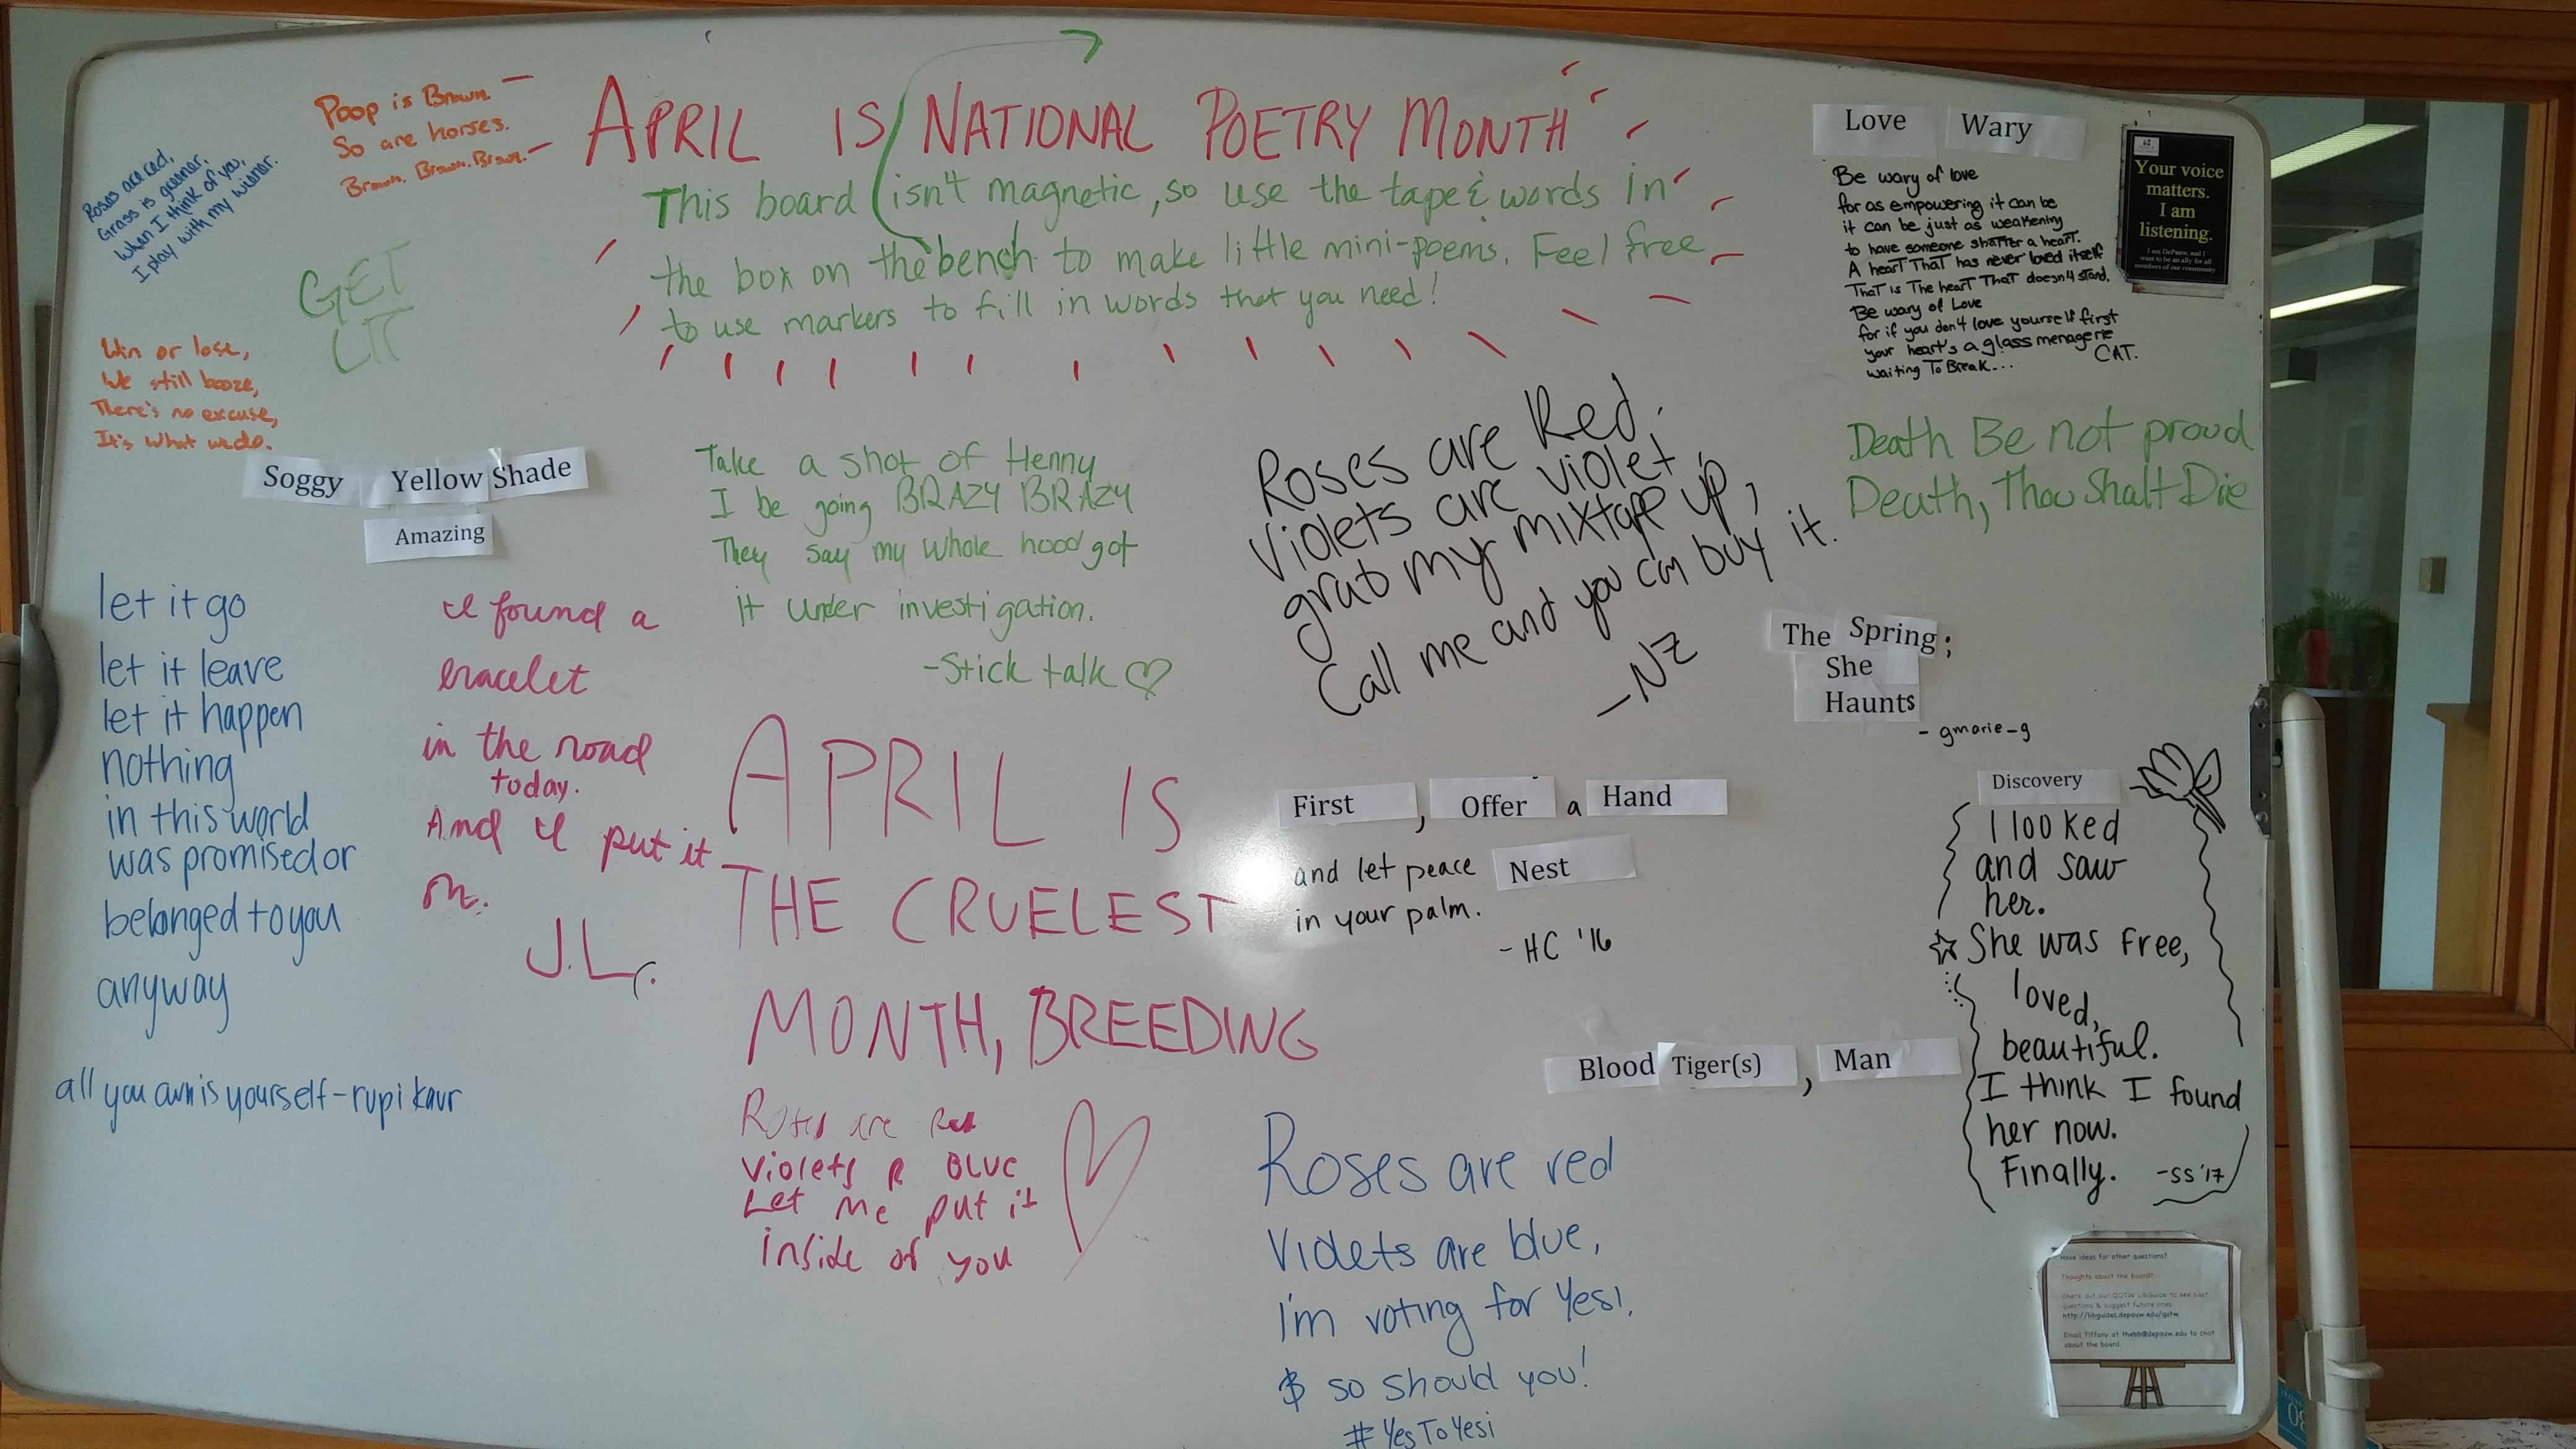 APRIL IS NATIONAL POETRY MONTH
This board isn't magnetic, so use the tape & words in
the box on the bench to make little mini-poems. Feel free
to use markers to fill in words that you need!
Poop is Brown.
So are horses.
Brown. Brown. Brown.
Roses are red,
Grass is greener,
When I think of you,
I play with my wiener.
GET
LIT
Win or lose,
We still booze,
There's no excuse,
It's what we do.
Soggy Yellow Shade
Amazing
let it go
let it leave
let it happen
nothing
in this world
was promised or
belonged to you
anyway
all you own is yourself - rupi kaur
I found a
bracelet
in the road
today.
And I put it
on.
J.L.
Take a shot of Henny
I be going BRAZY BRAZY
They say my whole hood got
it under investigation.
- Stick talk
APRIL IS
THE CRUELEST
MONTH, BREEDING
Roses are Red
Violets R BLUE
Let me put it
inside of you
Roses are Red,
Violets are violet,
grab my mixtape up,
Call me and you can buy it.
- NZ
First, Offer a Hand
and let peace Nest
in your palm.
- HC '16
Blood Tiger(s), Man
Roses are red
Violets are blue,
I'm voting for Yesi,
& so should you!
#YesToYesi
Love Wary
Be wary of love
for as empowering it can be
it can be just as weakening
to have someone shatter a heart.
A heart That has never loved itself
That is The heart That doesn't stand.
Be wary of Love
for if you don't love yourself first
your heart's a glass menagerie
waiting To Break...
CAT.
Your voice
matters.
I am
listening.
I am DePauw, and I
want to be an ally for all
members of our community.
Death Be not proud
Death, Thou Shalt Die
The Spring;
She
Haunts
- gmarie_g
Discovery
I looked
and saw
her.
She was free,
loved,
beautiful.
I think I found
her now.
Finally.
- SS '17
Have ideas for other questions?
Thoughts about the board?
Check out our QOTW LibGuide to see past
questions & suggest future ones.
http://libguides.depauw.edu/qotw
Email Tiffany at thebb@depauw.edu to chat
about the board.